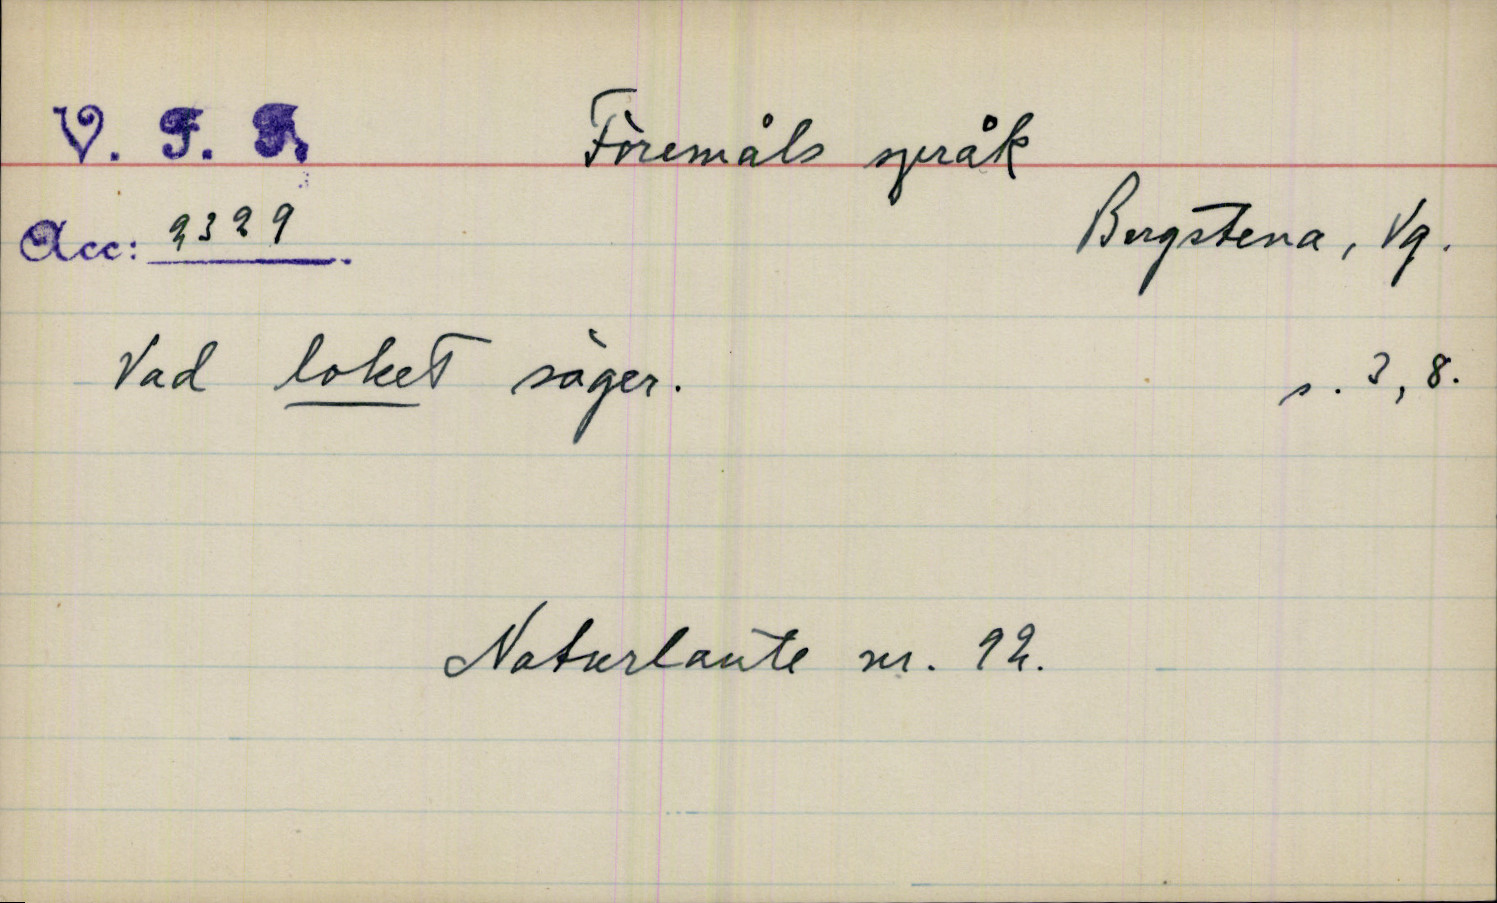 V. F. F.
Föremåls språk
Acc: 2329.
Bergstena, Vg.
Vad loket säger.
s. 3, 8.
Naturlaute nr. 92.